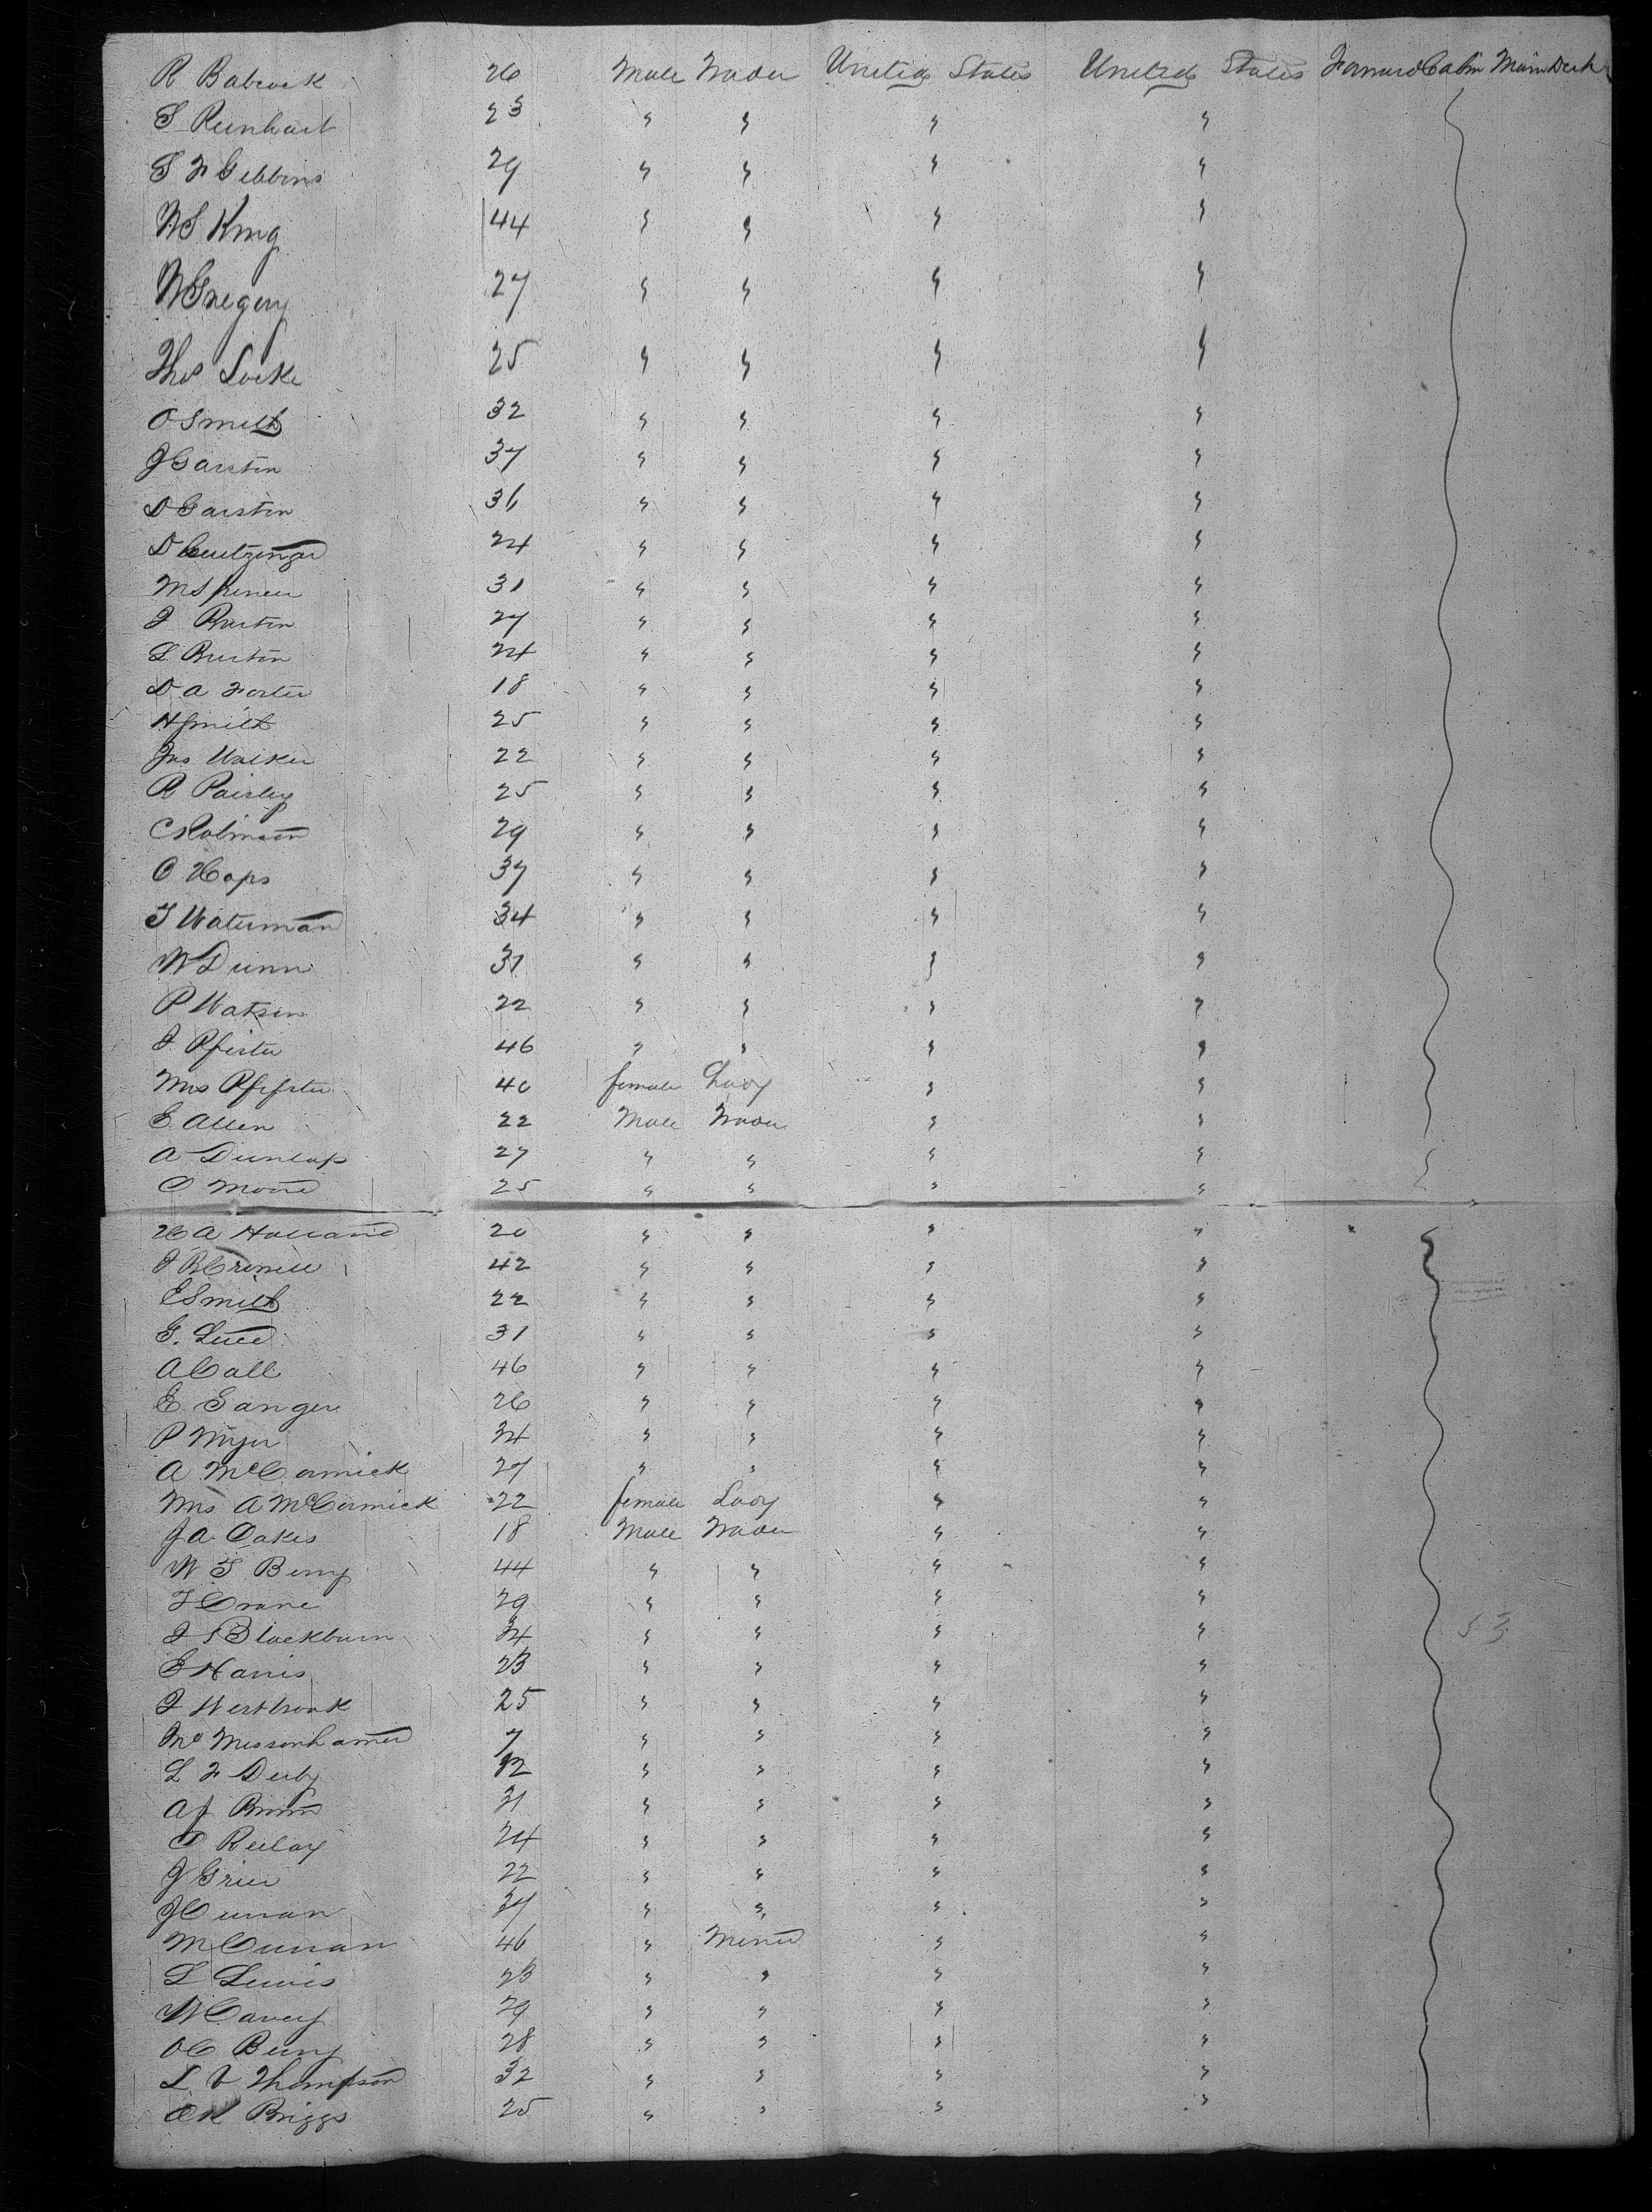 R Babcock 26 Male Trader United States United States Forward Cabin Main Deck
S Reinhart 23 " " " "
S F Gibbins 29 " " " "
W S King 44 " " " "
W Gregory 27 " " " "
Thos Locke 25 " " " "
O Smith 32 " " " "
J Garstin 37 " " " "
D Garstin 36 " " " "
D 24 " " " "
M Spencer 31 " " " "
J Burtin 27 " " " "
L Burtin 24 " " " "
D A Foster 18 " " " "
H Smith 25 " " " "
Jas Walker 22 " " " "
R Paisley 25 " " " "
C Robinson 29 " " " "
C Hops 37 " " " "
T Waterman 34 " " " "
W Dunn 31 " " " "
P Watson 22 " " " "
J Pfister 46 " " " "
Mrs Pfifster 40 female Lady " "
E Allen 22 Male Trader " "
A Dunlap 27 " " " "
C Moore 25 " " " "
H A Holland 20 " " " "
J B Crinell 42 " " " "
E Smith 22 " " " "
G. Luce 31 " " " "
A Call 46 " " " "
E Sanger 26 " " " "
P Myer 34 " " " "
A McCormick 27 " " " "
Mrs A McCormick 22 female Lady " "
J A Oakes 18 Male Trader " "
W T Berry 44 " " " "
T Crane 29 " " " "
J S Blackburn 34 " " " "
E Harris 23 " " " "
J Westbrook 25 " " " "
Messenhamer 7 " " " "
L F Derby 12 " " " "
A J 31 " " " "
24 " " " "
J Grier 22 " " " "
J Curran 37 " " " "
M Curran 46 " Miner " "
L Lewis 23 " " " "
W Cavey 29 " " " "
O C Berry 28 " " " "
L V Thompson 32 " " " "
Briggs 25 " " " "
53